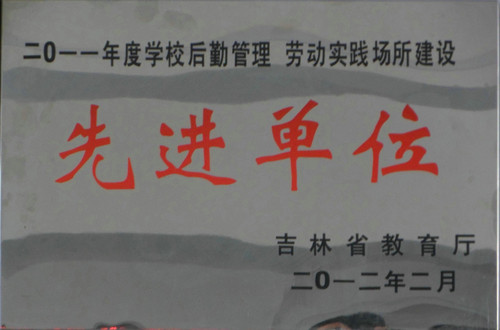 二0一一年度学校后勤管理 劳动实践场所建设
先进单位
吉林省教育厅
二0一二年二月